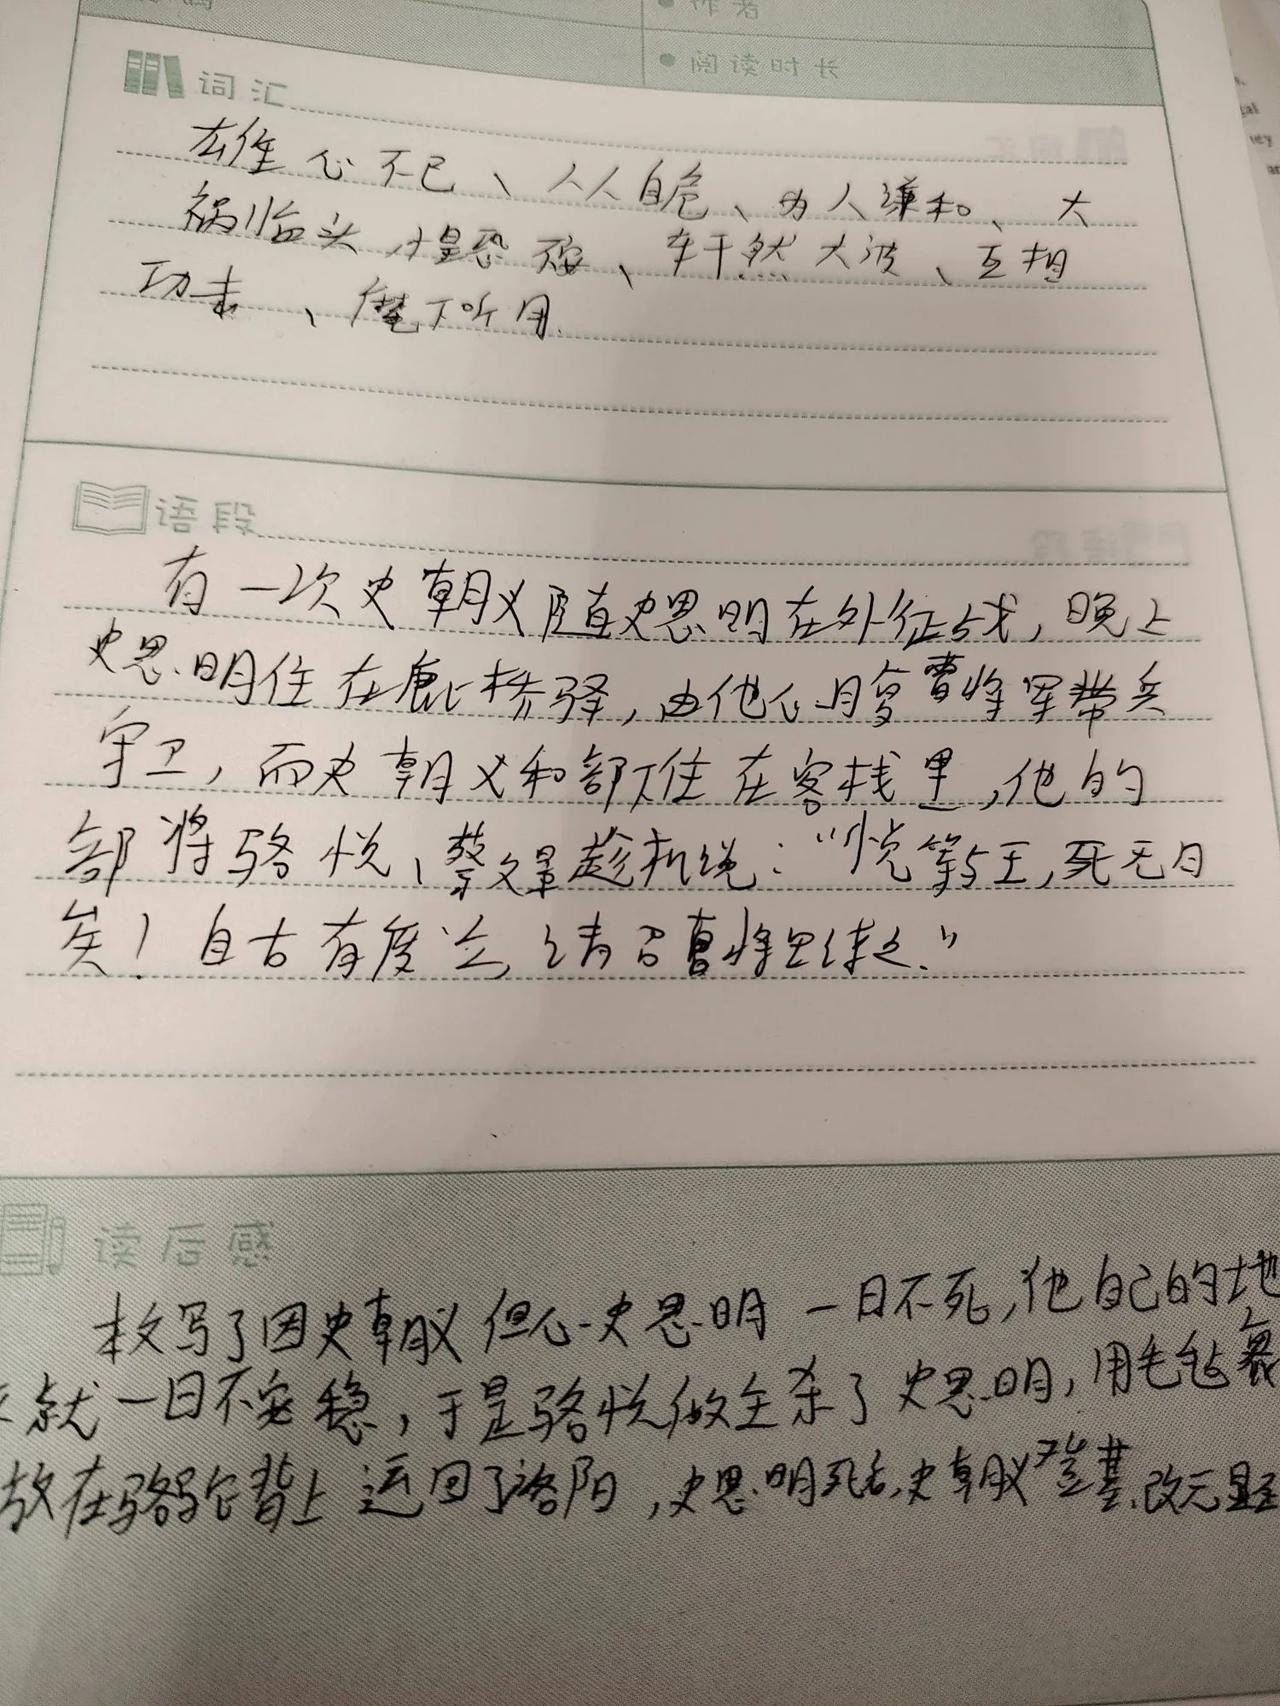 作者
阅读时长
词汇
雄心不已、人人自危、为人谦和、大
祸临头、惶恐不安、轩然大波、互相
功击、麾下听用.
语段
有一次史朝义随史思明在外征战，晚上
史思明住在鹿桥驿，由他心腹曹将军带兵
守卫，而史朝义和部下住在客栈里，他的
部将骆悦、蔡文景趁机说：“悦等与王，死无日
矣！自古有废立，请召曹将军徒之.”
读后感
本文写了因史朝义但心史思明一日不死，他自己的地
就一日不安稳，于是骆悦做主杀了史思明，用毛毡裹
放在骆驼背上运回了洛阳，史思明死后，史朝义登基.改元显